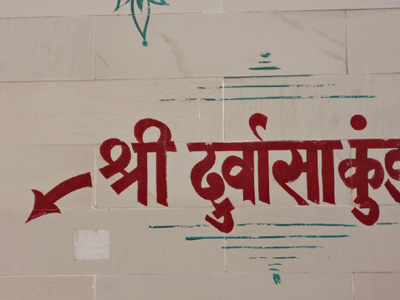 श्री दुर्वासाकुंड